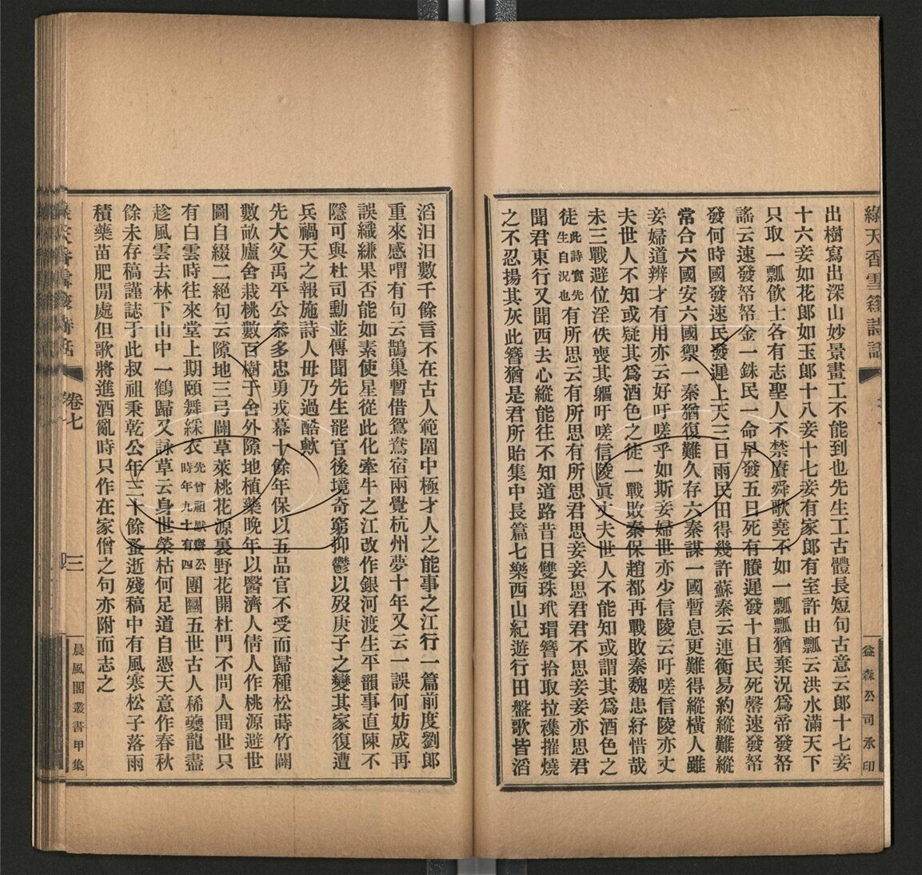 綠天香雪簃詩話
益森公司承印
出樹寫出深山妙景畫工不能到也先生工古體長短句古意云郎十七妾
十六妾如花郎如玉郎十八妾十七妾有家郎有室許由瓢云洪水滿天下
只取一瓢飲士各有志聖人不禁賡舜歌堯不如一瓢瓢猶棄況爲帝發帑
謠云速發帑帑金一銖民一命早發五日死有賸遲發十日民死罄速發帑
發何時國發速民發遲上天三日雨民田得幾許蘇秦云連衡易約縱難縱
常合六國安六國禦一秦猶復難久存六秦謀一國暫息更難得縱橫人雖
妾婦道辯才有用亦云好吁嗟乎如斯妾婦世亦少信陵云吁嗟信陵亦丈
夫世人不知或疑其爲酒色之徒一戰敗秦保趙都再戰敗秦魏患紓惜哉
未三戰避位淫佚喪其軀吁嗟信陵眞丈夫世人不能知或謂其爲酒色之
徒此詩實先生自況也有所思云有所思有所思君思妾妾思君君不思妾妾亦思君
聞君東行又聞西去心縱能往不知道路昔日雙珠玳瑁簪拾取拉襍摧燒
之不忍揚其灰此簪猶是君所貽集中長篇七樂西山紀遊行田盤歌皆滔
滔汨汨數千餘言不在古人範圍中極才人之能事之江行一篇前度劉郎
重來感喟有句云鵲巢暫借鴛鴦宿兩覺杭州夢十年又云一誤何妨成再
誤織縑果否能如素使星從此化牽牛之江改作銀河渡生平韻事直陳不
隱可與杜司勳並傳聞先生罷官後境奇窮抑鬱以歿庚子之變其家復遭
兵禍天之報施詩人毋乃過酷歟
先大父禹平公叅多忠勇戎幕十餘年保以五品官不受而歸種松蒔竹闢
數畝廬舍栽桃數百樹于舍外隙地植藥晚年以醫濟人倩人作桃源避世
圖自綴二絕句云隙地三弓闢草萊桃花源裏野花開杜門不問人間世只
有白雲時往來堂上期頤舞綵衣先曾祖獻齋公時年九十有四團圞五世古人稀夔龍盡
趁風雲去林下山中一鶴歸又詠草云身世榮枯何足道自憑天意作春秋
餘未存稿謹誌于此叔祖秉乾公年三十餘蚤逝殘稿中有風寒松子落雨
積藥苗肥閒處但歌將進酒亂時只作在家僧之句亦附而志之
卷七
三
晨風閣叢書甲集